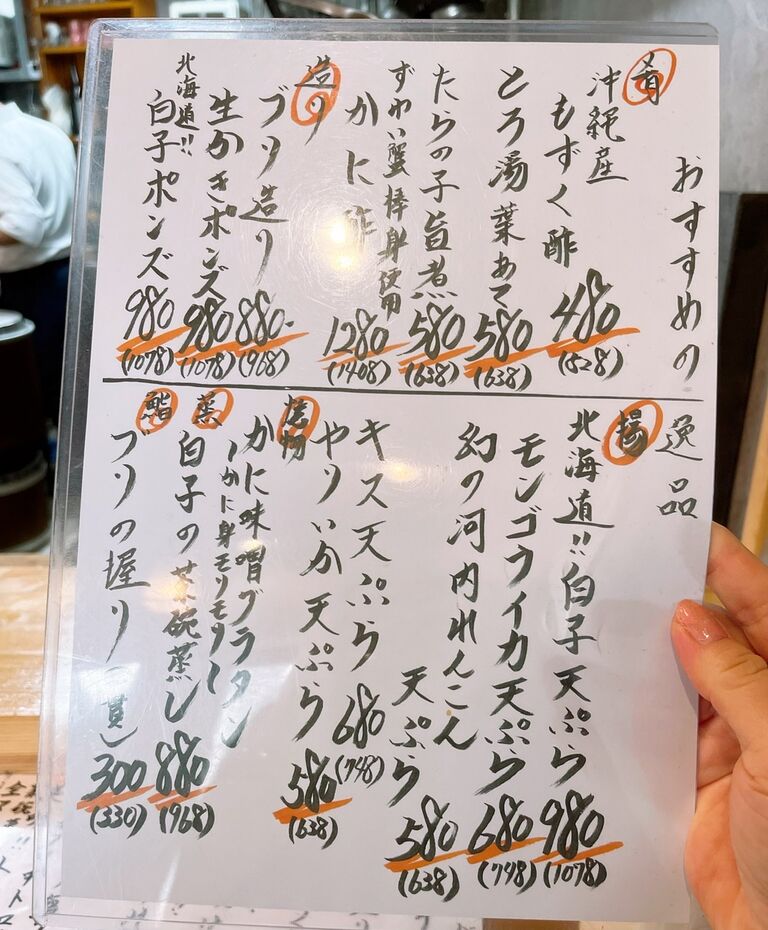 おすすめの
逸品
肴
沖縄産
もずく酢
480
(528)
とろ湯葉あて
580
(638)
たらの子旨煮
580
(638)
ずわい蟹棒身使用
かに酢
1280
(1408)
造り
ブリ造り
880
(968)
生かきポンズ
980
(1078)
北海道!!
白子ポンズ
980
(1078)
揚
北海道!!白子天ぷら
980
(1078)
モンゴウイカ天ぷら
680
(748)
幻の河内れんこん
天ぷら
580
(638)
キス天ぷら
680
(748)
やりいか天ぷら
580
(638)
焼物
かに味噌グラタン
かに身モリモリ
蒸
白子の茶碗蒸し
880
(968)
鮨
ブリの握り(一貫)
300
(330)